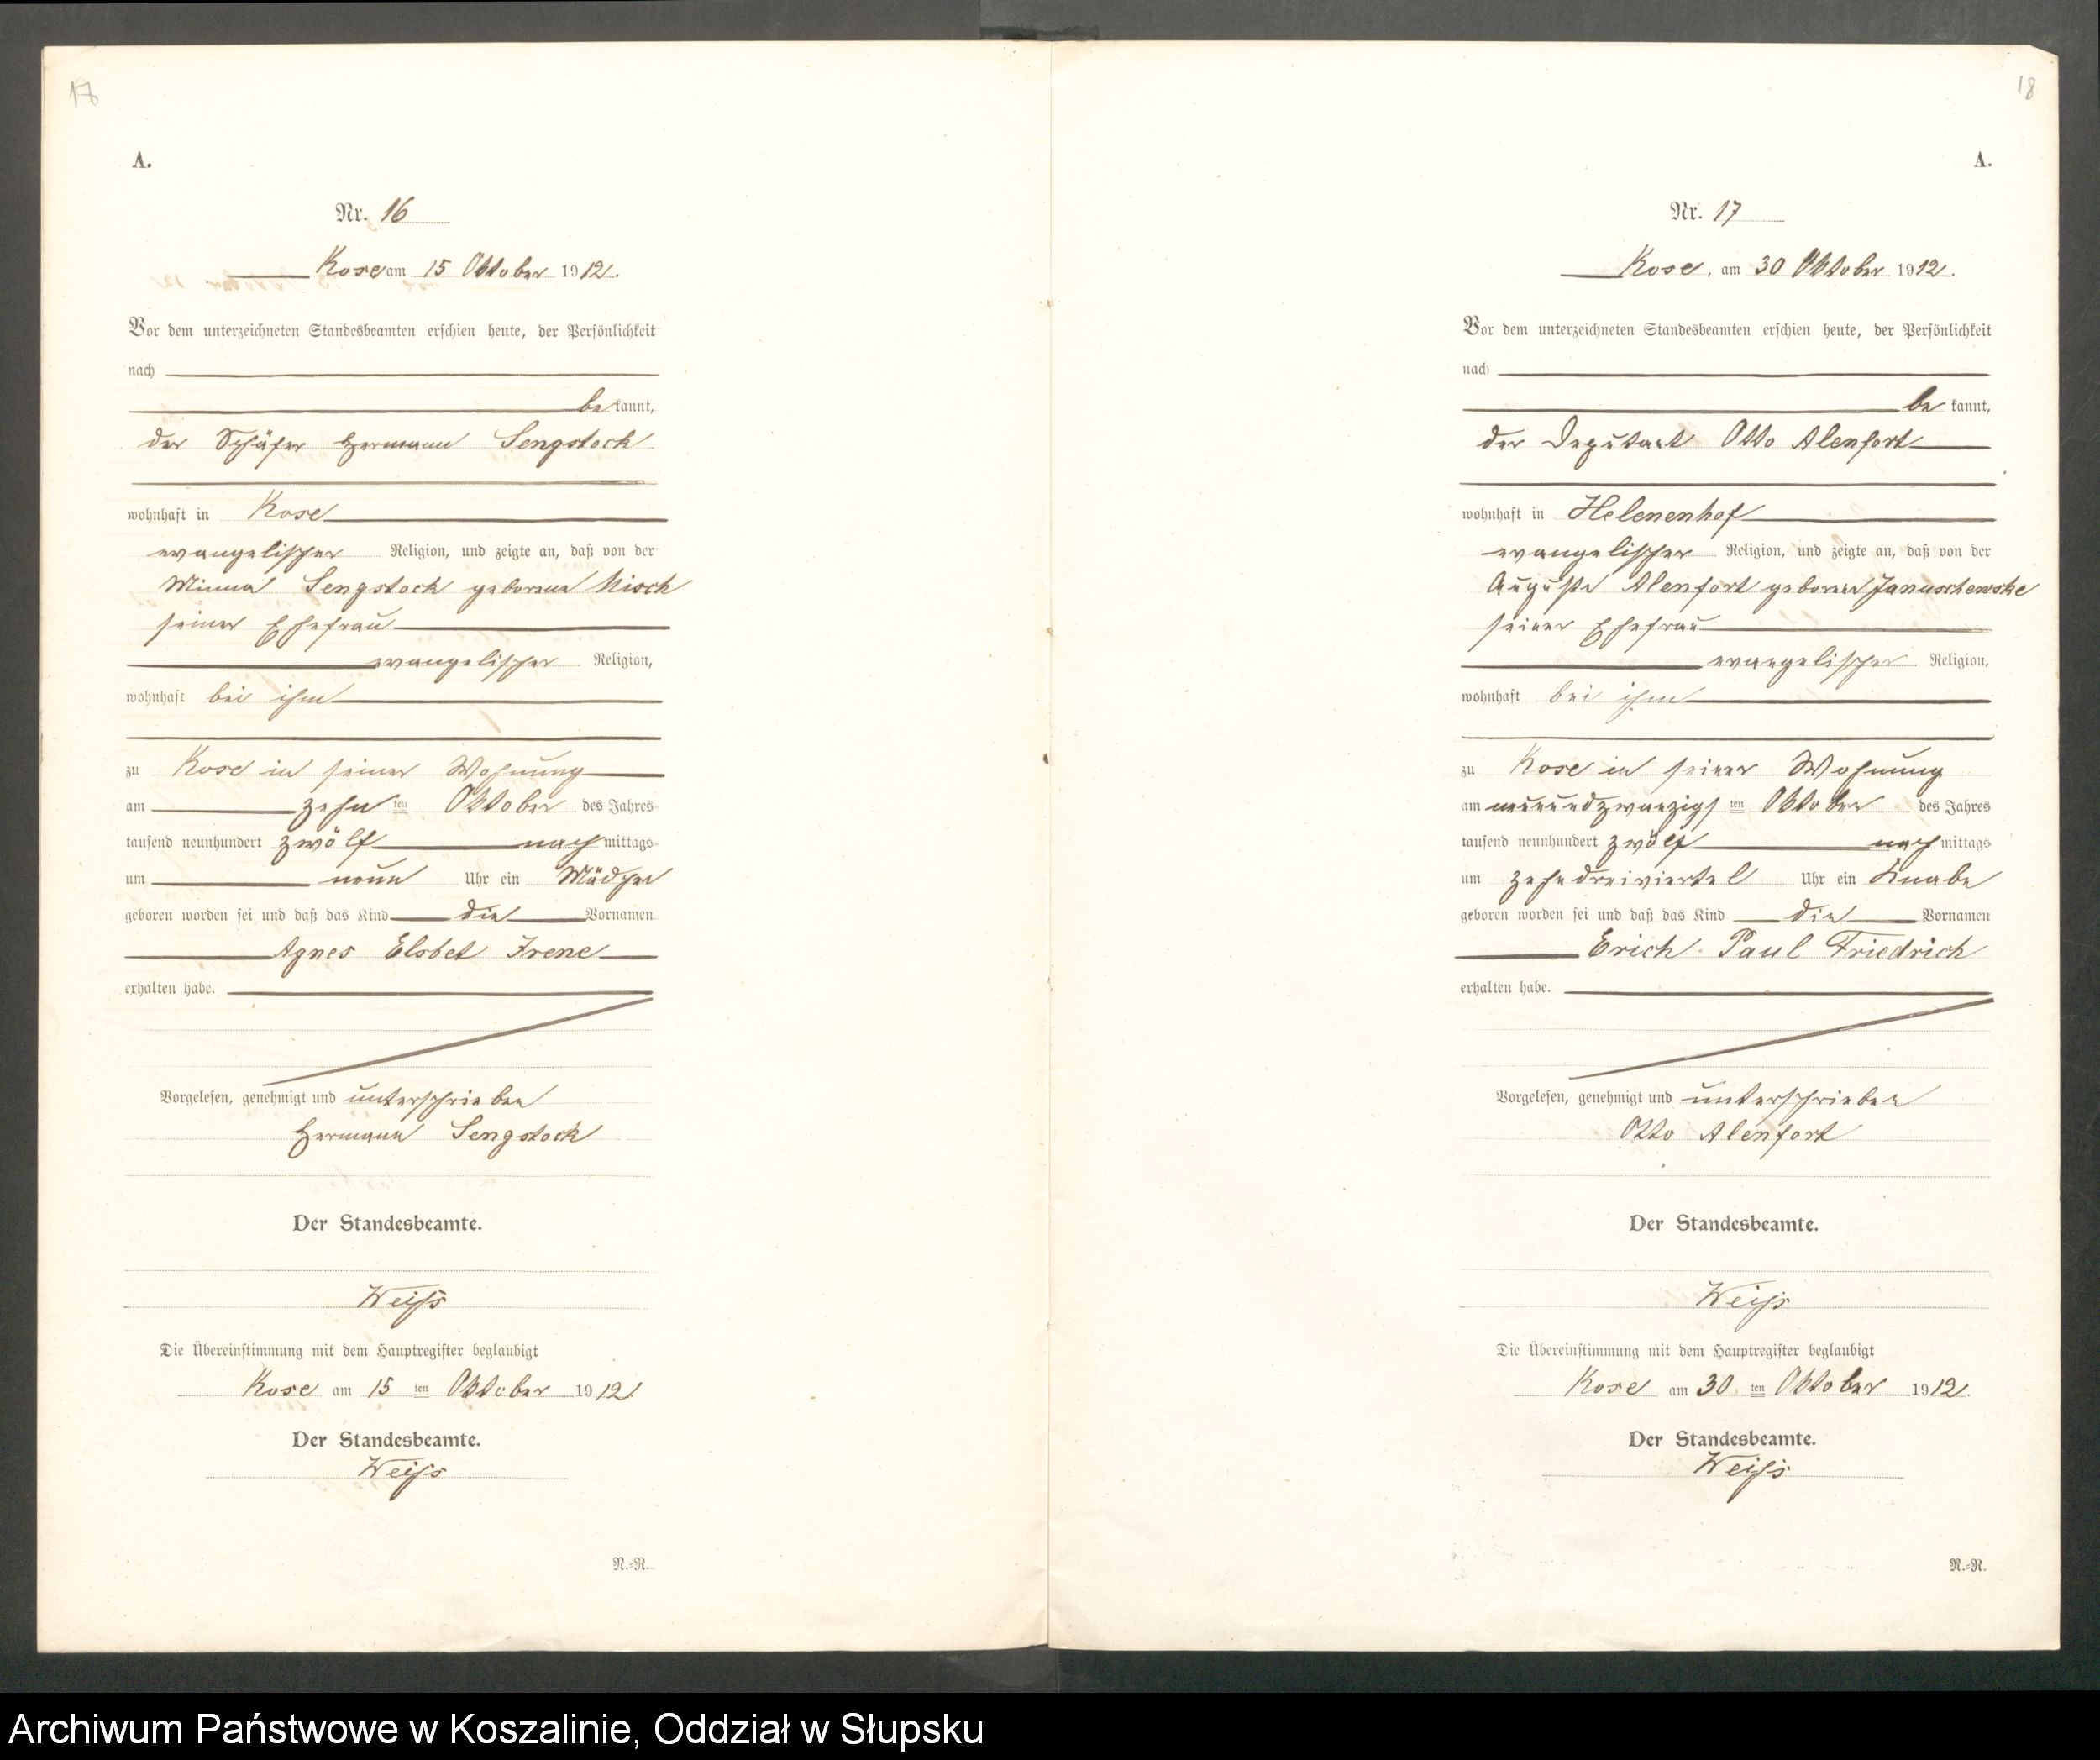 17
A.
Nr. 16
Kose am 15 Oktober 1912.
Vor dem unterzeichneten Standesbeamten erschien heute, der Persönlichkeit
nach
bekannt,
der Schäfer Hermann Sengstock
wohnhaft in Kose
evangelischer Religion, und zeigte an, daß von der
Minna Sengstock geborene Nisch
seiner Ehefrau
evangelischer Religion,
wohnhaft bei ihm
zu Kose in seiner Wohnung
am zehn ten Oktober des Jahres
tausend neunhundert zwölf nachmittags
um neun Uhr ein Mädchen
geboren worden sei und daß das Kind die Vornamen
Agnes Elsbet Irene
erhalten habe.
Vorgelesen, genehmigt und unterschrieben
Hermann Sengstock
Der Standesbeamte.
Weiß
Die Übereinstimmung mit dem Hauptregister beglaubigt
Kose am 15 ten Oktober 1912
Der Standesbeamte.
Weiß
N.-R.
18
A.
Nr. 17
Kose, am 30 Oktober 1912.
Vor dem unterzeichneten Standesbeamten erschien heute, der Persönlichkeit
nach
bekannt,
der Deputant Otto Alenfort
wohnhaft in Helenenhof
evangelischer Religion, und zeigte an, daß von der
Auguste Alenfort geborene Januschewske
seiner Ehefrau
evangelischer Religion,
wohnhaft bei ihm
zu Kose in seiner Wohnung
am neunundzwanzigs ten Oktober des Jahres
tausend neunhundert zwölf nachmittags
um zehndreiviertel Uhr ein Knabe
geboren worden sei und daß das Kind die Vornamen
Erich Paul Friedrich
erhalten habe.
Vorgelesen, genehmigt und unterschrieben
Otto Alenfort
Der Standesbeamte.
Weiß
Die Übereinstimmung mit dem Hauptregister beglaubigt
Kose am 30 ten Oktober 1912.
Der Standesbeamte.
Weiß
N.-R.
Archiwum Państwowe w Koszalinie, Oddział w Słupsku